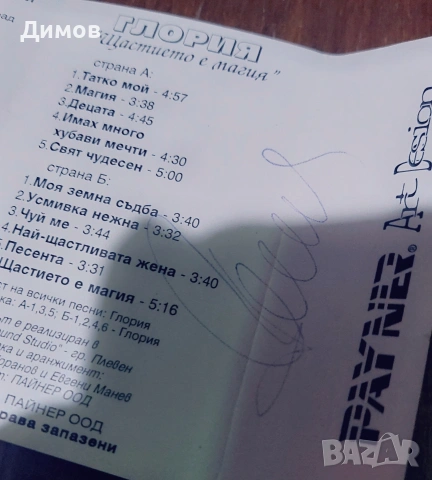 Димов
ГЛОРИЯ
"Щастието е магия"
страна А:
1.Татко мой - 4:57
2.Магия - 3:38
3.Децата - 4:45
4.Имах много
хубави мечти - 4:30
5.Свят чудесен - 5:00
страна Б:
1.Моя земна съдба - 3:40
2.Усмивка нежна - 3:32
3.Чуй ме - 3:44
4.Най-щастливата жена - 3:40
5.Песента - 3:31
Щастието е магия - 5:16
на всички песни: Глория
А-1,3,5; Б-1,2,4,6 - Глория
е реализиран в
Studio" - гр. Плевен
и аранжимент:
и Евгени Манев
ПАЙНЕР ООД
ПАЙНЕР ООД
права запазени
PAYNER®
Art Design
BAZAR